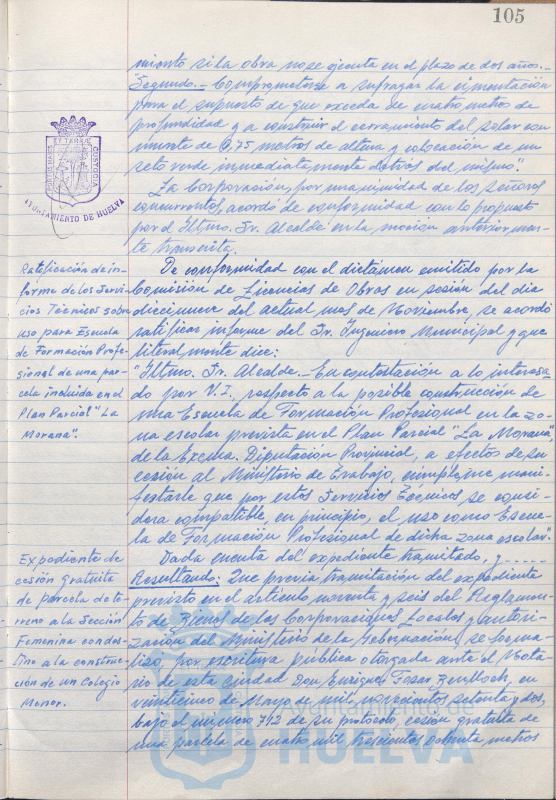 105
miento si la obra no se ejecuta en el plazo de dos años.-
Segundo.- Comprometerse a sufragar la cimentación
para el supuesto de que exceda de cuatro metros de
profundidad y a construir el cerramiento del solar con
murete de 0,75 metros de altura y colocación de un
seto verde inmediatamente detrás del mismo".
La Corporación, por unanimidad de los señores
concurrentes, acordó de conformidad con lo propuesto
por el Iltmo. Sr. Alcalde en la moción anteriormen-
te transcrita.
AYUNTAMIENTO DE HUELVA
Ratificación de in-
forme de los Servi-
cios Técnicos sobre
uso para Escuela
de Formación Profe-
sional de una par-
cela incluida en el
Plan Parcial "La
Morana".
De conformidad con el dictámen emitido por la
Comisión de Licencias de Obras en sesión del dia
diecinueve del actual mes de Noviembre, se acordó
ratificar informe del Sr. Ingeniero Municipal y que
literalmente dice:
"Iltmo. Sr. Alcalde.- En contestación a lo interesa
do por V.I. respecto a la posible construcción de
una Escuela de Formación Profesional en la zo-
na escolar prevista en el Plan Parcial "La Morana"
de la Excma. Diputación Provincial, a efectos de su
cesión al Ministerio de Trabajo, cúmpleme mani-
festarle que por estos Servicios Técnicos, se consi-
dera compatible, en principio, el uso como Escue-
la de Formación Profesional de dicha zona escolar".
Expediente de
cesión gratuita
de parcela de te-
rreno a la Sección
Femenina con des-
tino a la construc-
ción de un Colegio
Menor.
Dada cuenta del expediente tramitado, y......
Resultando: Que previa tramitación del expediente
previsto en el artículo noventa y seis del Reglamen-
to de Bienes de las Corporaciones Locales y autori-
zación del Ministerio de la Gobernación, se forma-
lizó, por escritura pública otorgada ante el Nota
rio de esta ciudad Don Enrique en
veinticinco de Mayo de mil novecientos setenta y dos,
bajo el número 712 de su protocolo, cesión gratuita de
una parcela de cuatro mil trescientos metros
Ayuntamiento de
HUELVA